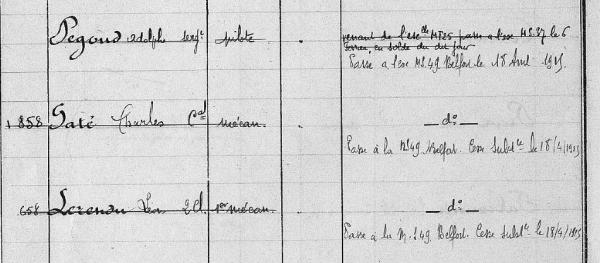 Pegoud Adolphe Serg^t pilote venant de l'esc^lle MF25 passe a l'esc MS.37 le 6
en solde du dit jour
Passe a l'esc MS.49 Belfort le 18 Avril 1915.
1 858 Gaté Charles C^al mécan. — d° —
Passe à la MS.49 Belfort. Cesse Subst^ce le 18/4/1915
658 Lerendu Léon 2 Cl. 1^er mécan. — d° —
Passe à la M.S.49. Belfort. Cesse Subst^ce le 18/4/1915